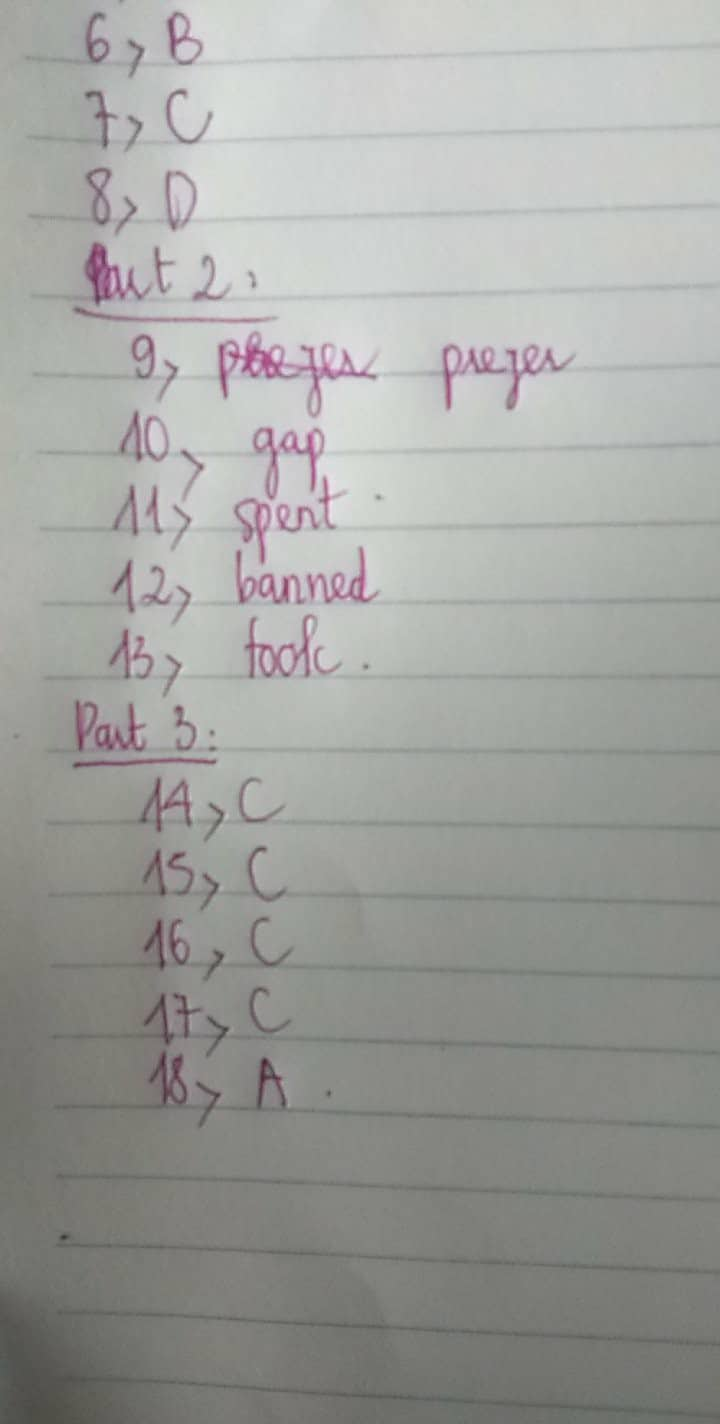 6, B
7, C
8, D
Part 2:
9, prefer
10, gap
11, spent.
12, banned
13, took.
Part 3:
14, C
15, C
16, C
17, C
18, A.